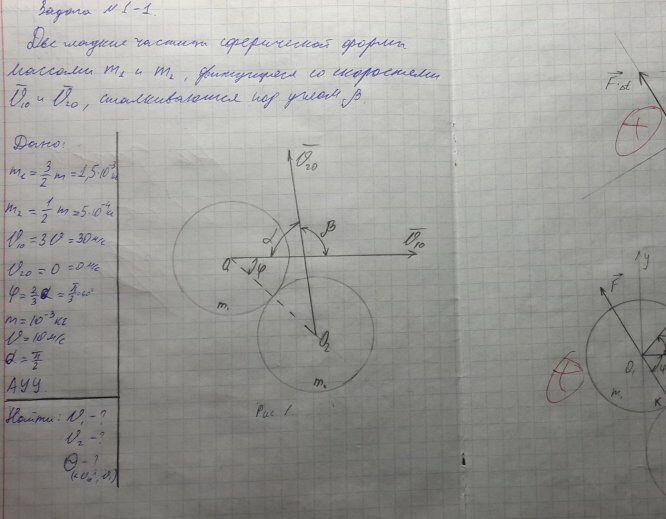 Задача №1-1.
Две гладкие частицы сферической формы
массами m₁ и m₂, движущиеся со скоростями
v̄₁₀ и v̄₂₀, сталкиваются под углом β.
Дано:
m₁ = 3/2 m = 1,5·10⁻³ кг
m₂ = 1/2 m = 5·10⁻⁴ кг
v₁₀ = 3v = 30 м/с
v₂₀ = 0 = 0 м/с
φ = 2/3 α = π/3 = 60°
m = 10⁻³ кг
v = 10 м/с
α = π/2
АУУ
Найти: v₁ - ?
v₂ - ?
Θ - ?
v̄₂₀
α
β
v̄₁₀
O₁
φ
m₁
O₂
m₂
Рис 1.
F⃗·Δt
y
F⃗
O₁
φ
m₁
K